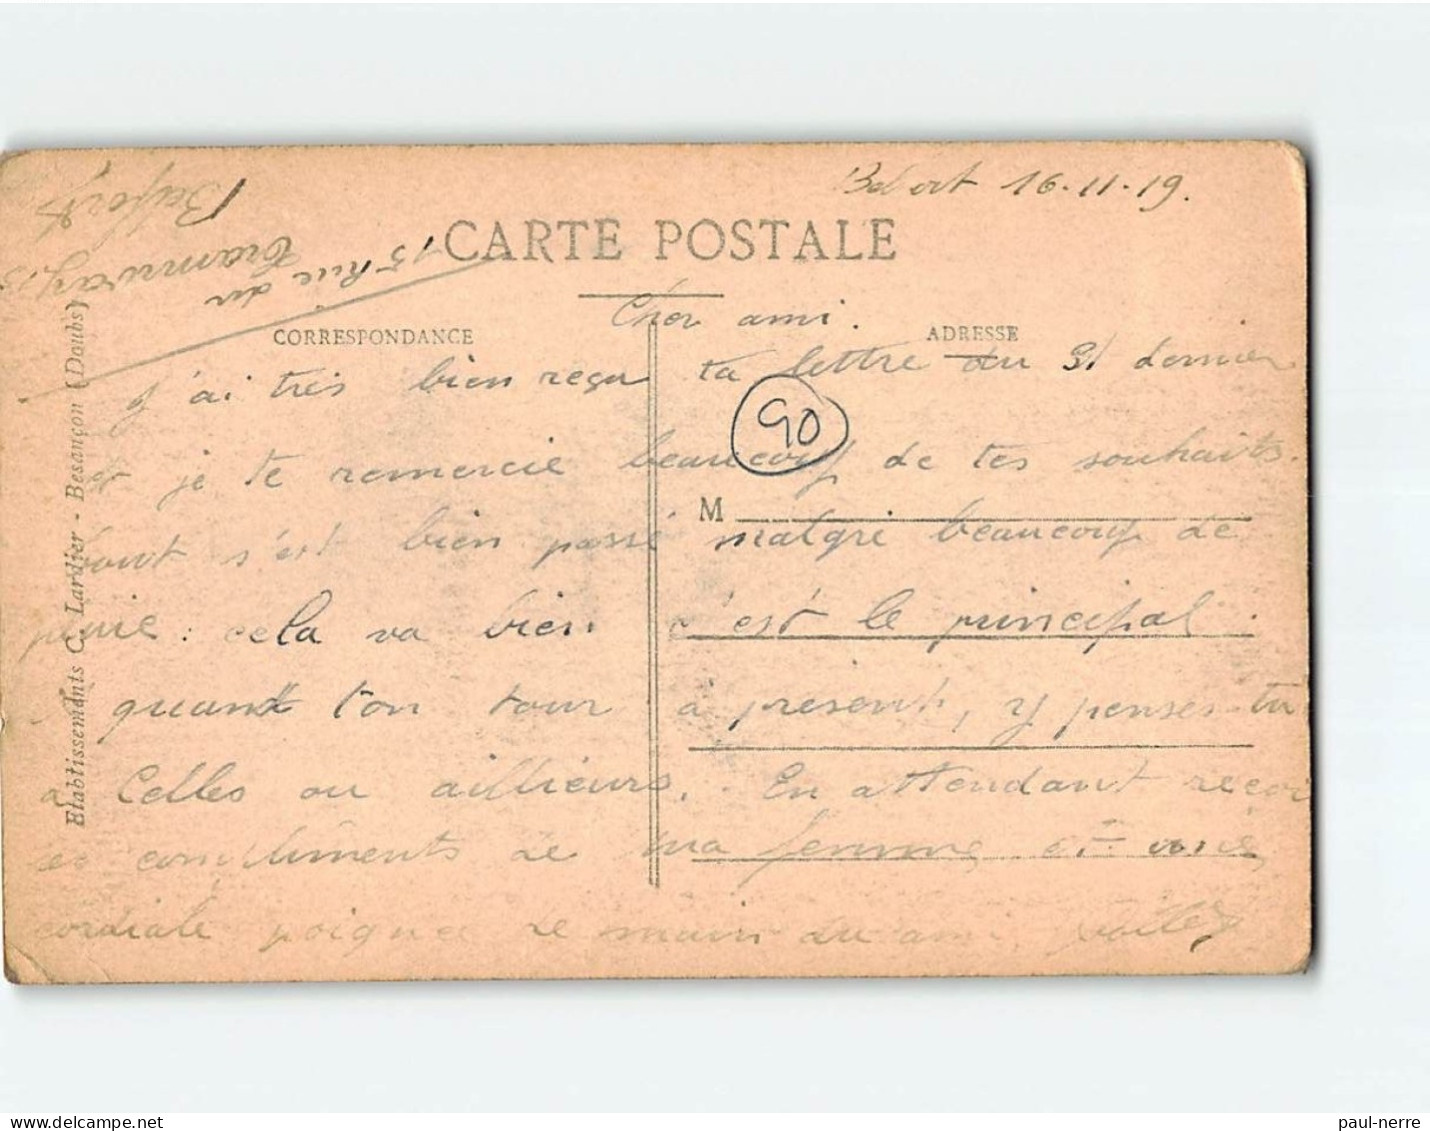 Belfort 16.11.19.
15 Rue du
Tramway.
Belfort
CARTE POSTALE
CORRESPONDANCE
ADRESSE
Cher ami.
J'ai très bien reçu ta lettre du 31 dernier
et je te remercie beaucoup de tes souhaits.
tout s'est bien passé malgré beaucoup de
pluie : cela va bien c'est le principal.
quant ton tour à présent, y penses-tu
à Celles ou ailleurs. En attendant reçois
les compliments de ma femme et une
cordiale poignée de main du ami
M
90
Etablissements C. Lardier - Besançon (Doubs)
paul-nerre